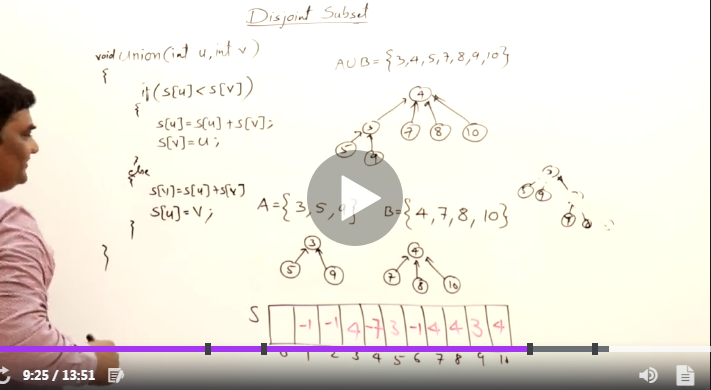 Disjoint Subset
void Union(int u, int v)
{
if(S[u]<S[v])
{
S[u]=S[u]+S[v];
S[v]=u;
}
else
{
S[v]=S[u]+S[v]
S[u]=v;
}
}
AUB={3,4,5,7,8,9,10}
4
3 7 8 10
5 9
A={3,5,9} B={4,7,8,10}
3 4
5 9 7 8 10
S -1 -1 4 -7 3 -1 4 4 3 4
0 1 2 3 4 5 6 7 8 9 10
9:25 / 13:51